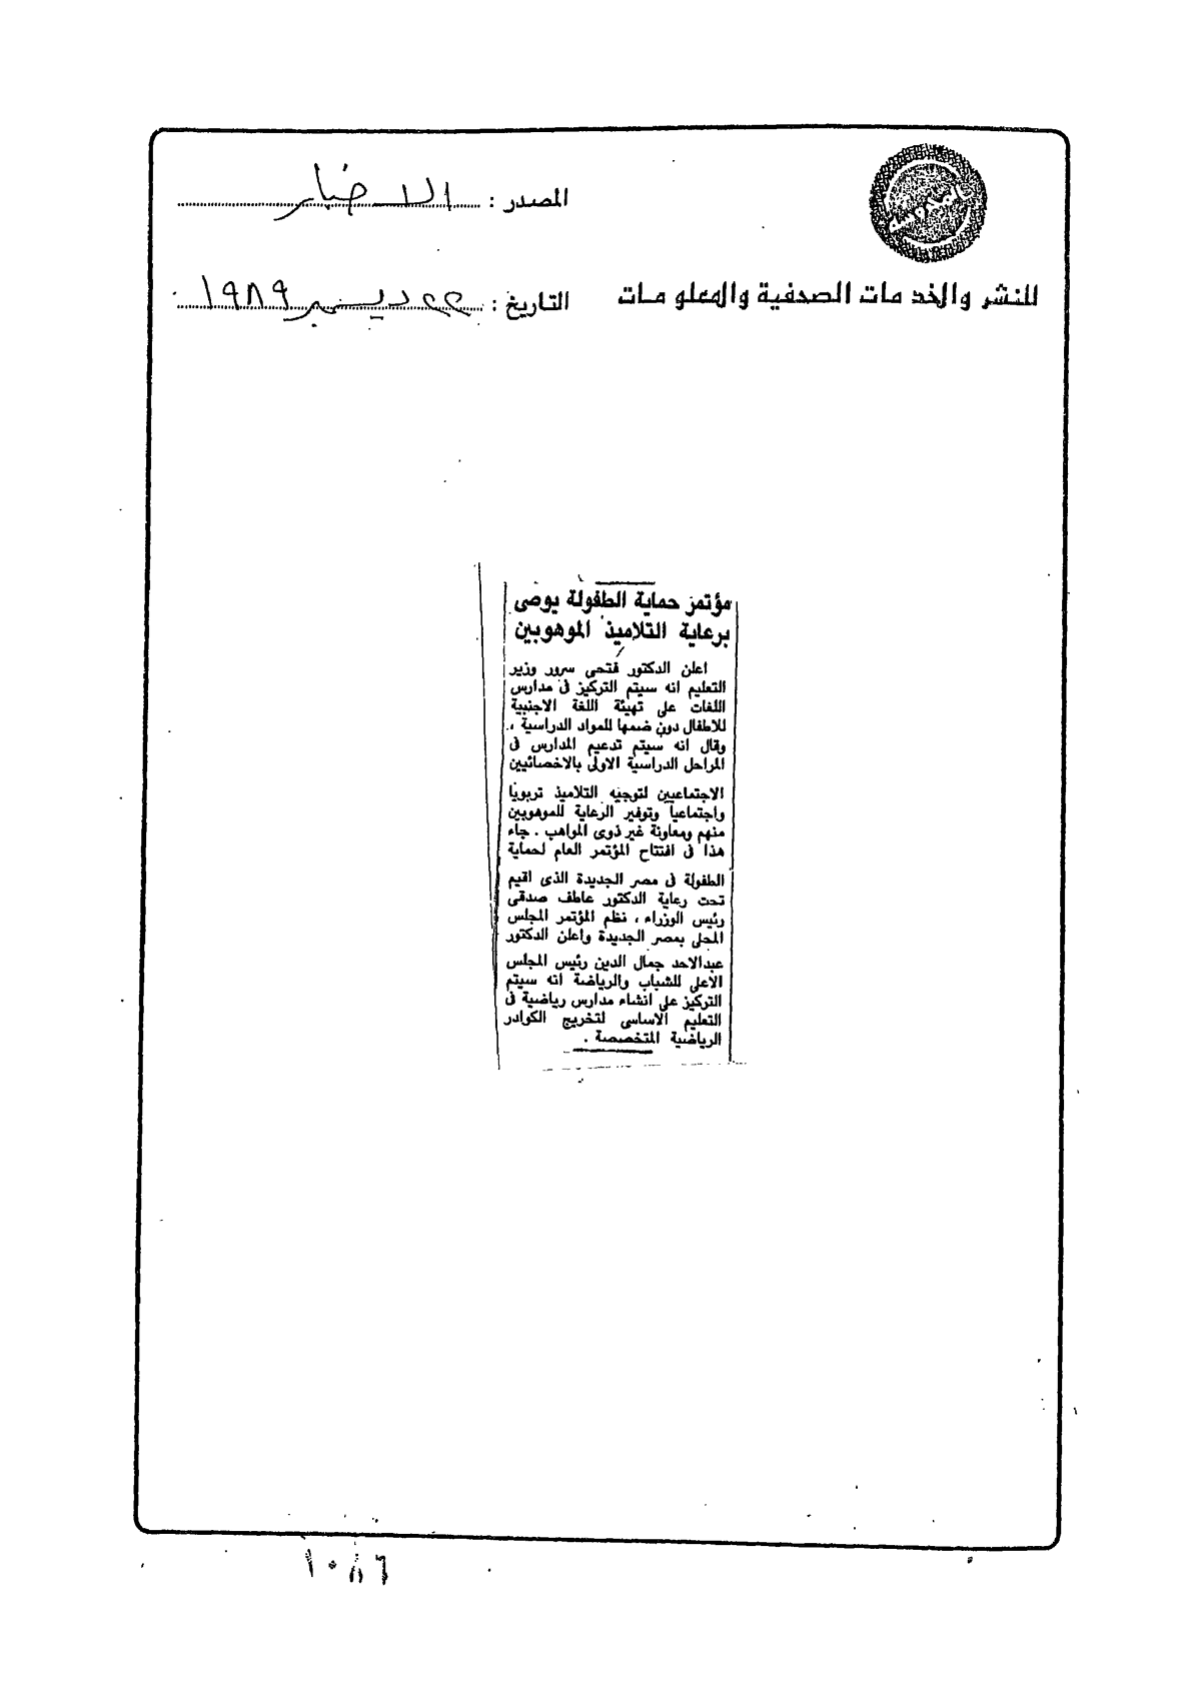 المصدر : الاخبار
للنشر والخدمات الصحفية والمعلومات
التاريخ : ٢٢ ديسمبر ١٩٨٩
مؤتمر حماية الطفولة يوصى
برعاية التلاميذ الموهوبين
اعلن الدكتور فتحى سرور وزير
التعليم انه سيتم التركيز فى مدارس
اللغات على تهيئة اللغة الاجنبية
للاطفال دون ضمها للمواد الدراسية .
وقال انه سيتم تدعيم المدارس فى
المراحل الدراسية الاولى بالاخصائيين
الاجتماعيين لتوجيه التلاميذ تربويا
واجتماعيا وتوفير الرعاية للموهوبين
منهم ومعاونة غير ذوى المواهب . جاء
هذا فى افتتاح المؤتمر العام لحماية
الطفولة فى مصر الجديدة الذى اقيم
تحت رعاية الدكتور عاطف صدقى
رئيس الوزراء ، نظم المؤتمر المجلس
المحلى بمصر الجديدة واعلن الدكتور
عبدالاحد جمال الدين رئيس المجلس
الاعلى للشباب والرياضة انه سيتم
التركيز على انشاء مدارس رياضية فى
التعليم الاساسى لتخريج الكوادر
الرياضية المتخصصة .
١٠٨٦